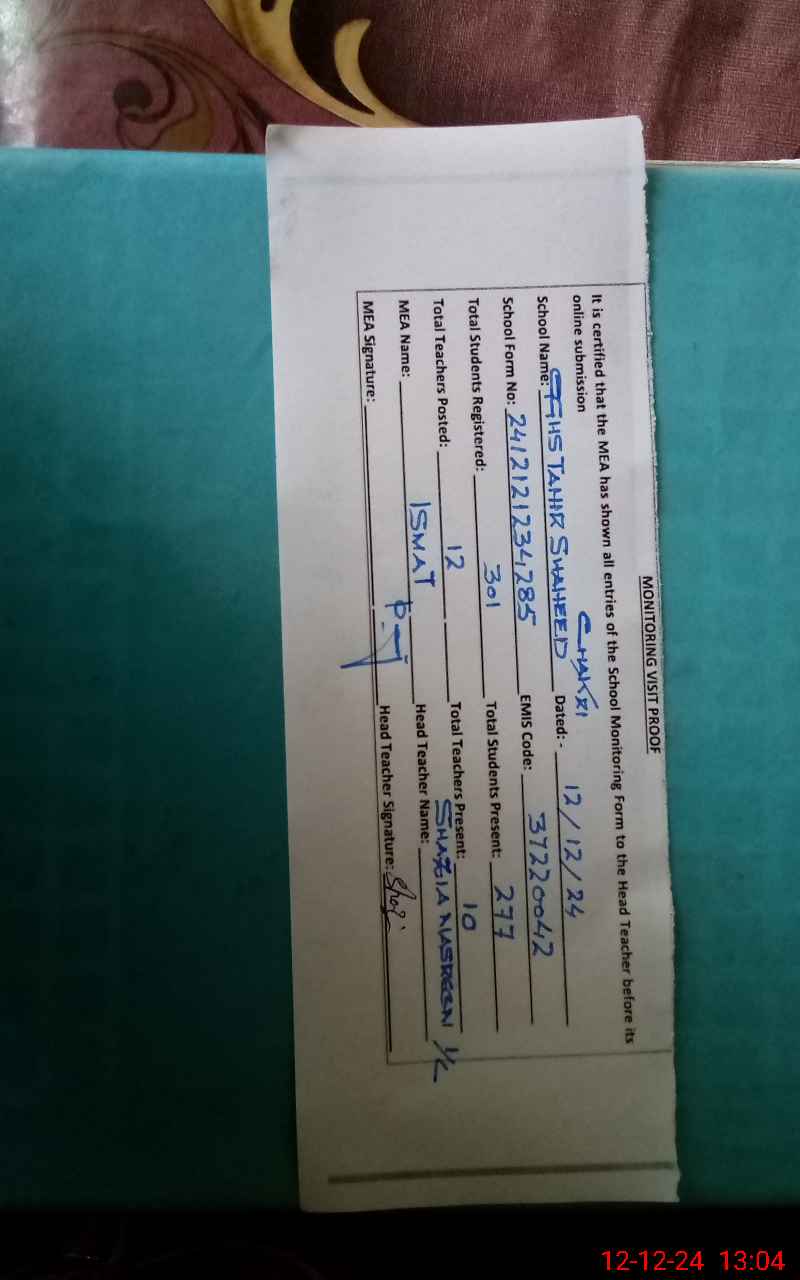 MONITORING VISIT PROOF
It is certified that the MEA has shown all entries of the School Monitoring Form to the Head Teacher before its
online submission
CHAKRI
School Name: GGHS TAHIR SHAHEED Dated: - 12/12/24
School Form No: 24121212234285 EMIS Code: 37220042
Total Students Registered: 301 Total Students Present: 277
Total Teachers Posted: 12 Total Teachers Present: 10
MEA Name: ISMAT Head Teacher Name: SHAZIA NASREEN I/C
MEA Signature: Head Teacher Signature: Shazi
12-12-24 13:04